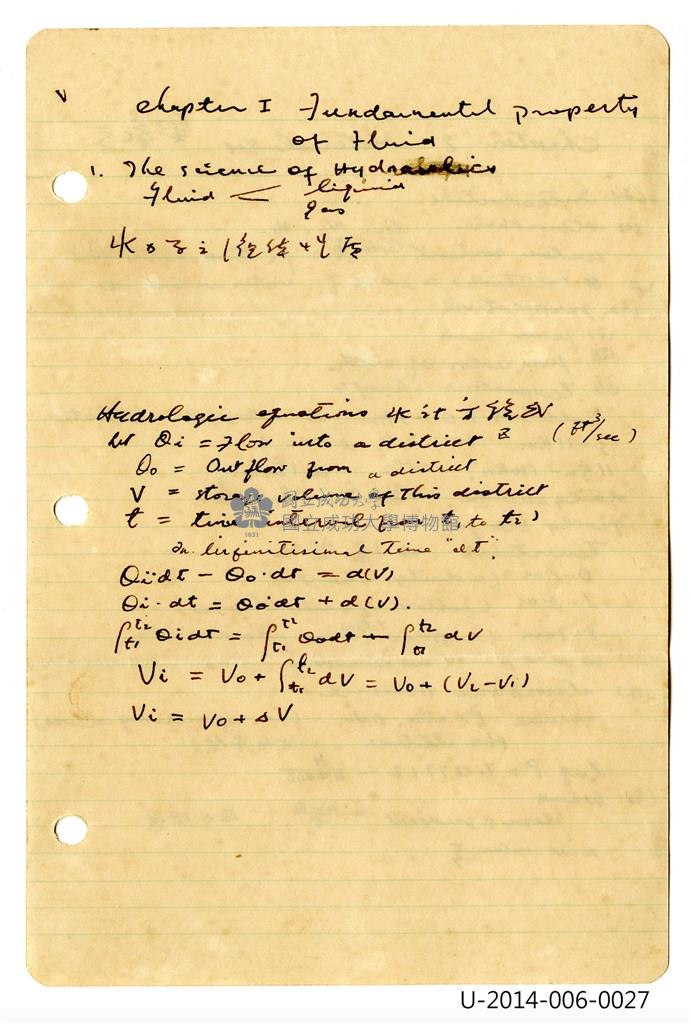 V
Chapter I Fundamental property
of Fluid
1. The science of Hydraulics
Fluid < liquid
gas
水分子之
Hydrologic equations 水計方程式
let Qi = Flow into a district (ft³/sec)
Qo = Outflow from a district
V = storage volume of this district
國立成功大學
t = time interval for t1 to t2
國立成功大學博物館
1931
In Linfinitisimal time "dt".
Qi·dt - Qo·dt = d(V)
Qi·dt = Qo·dt + d(V).
∫t1 t2 Qidt = ∫t1 t2 Qodt + ∫t1 t2 dV
Vi = Vo + ∫t1 t2 dV = Vo + (V2-V1)
Vi = Vo + ΔV
U-2014-006-0027